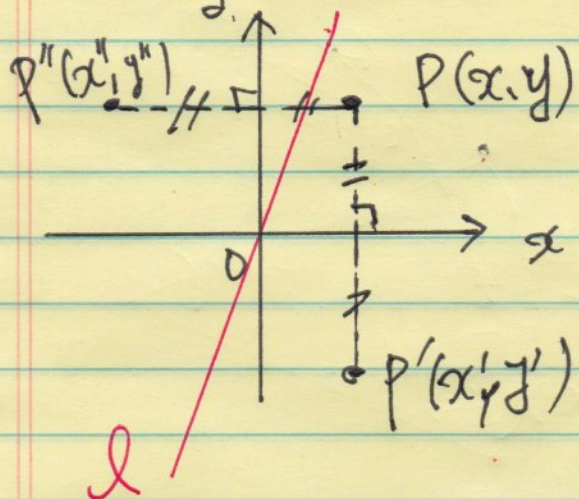 y
P''(x'', y'') P(x, y)
x
O
P'(x', y')
l